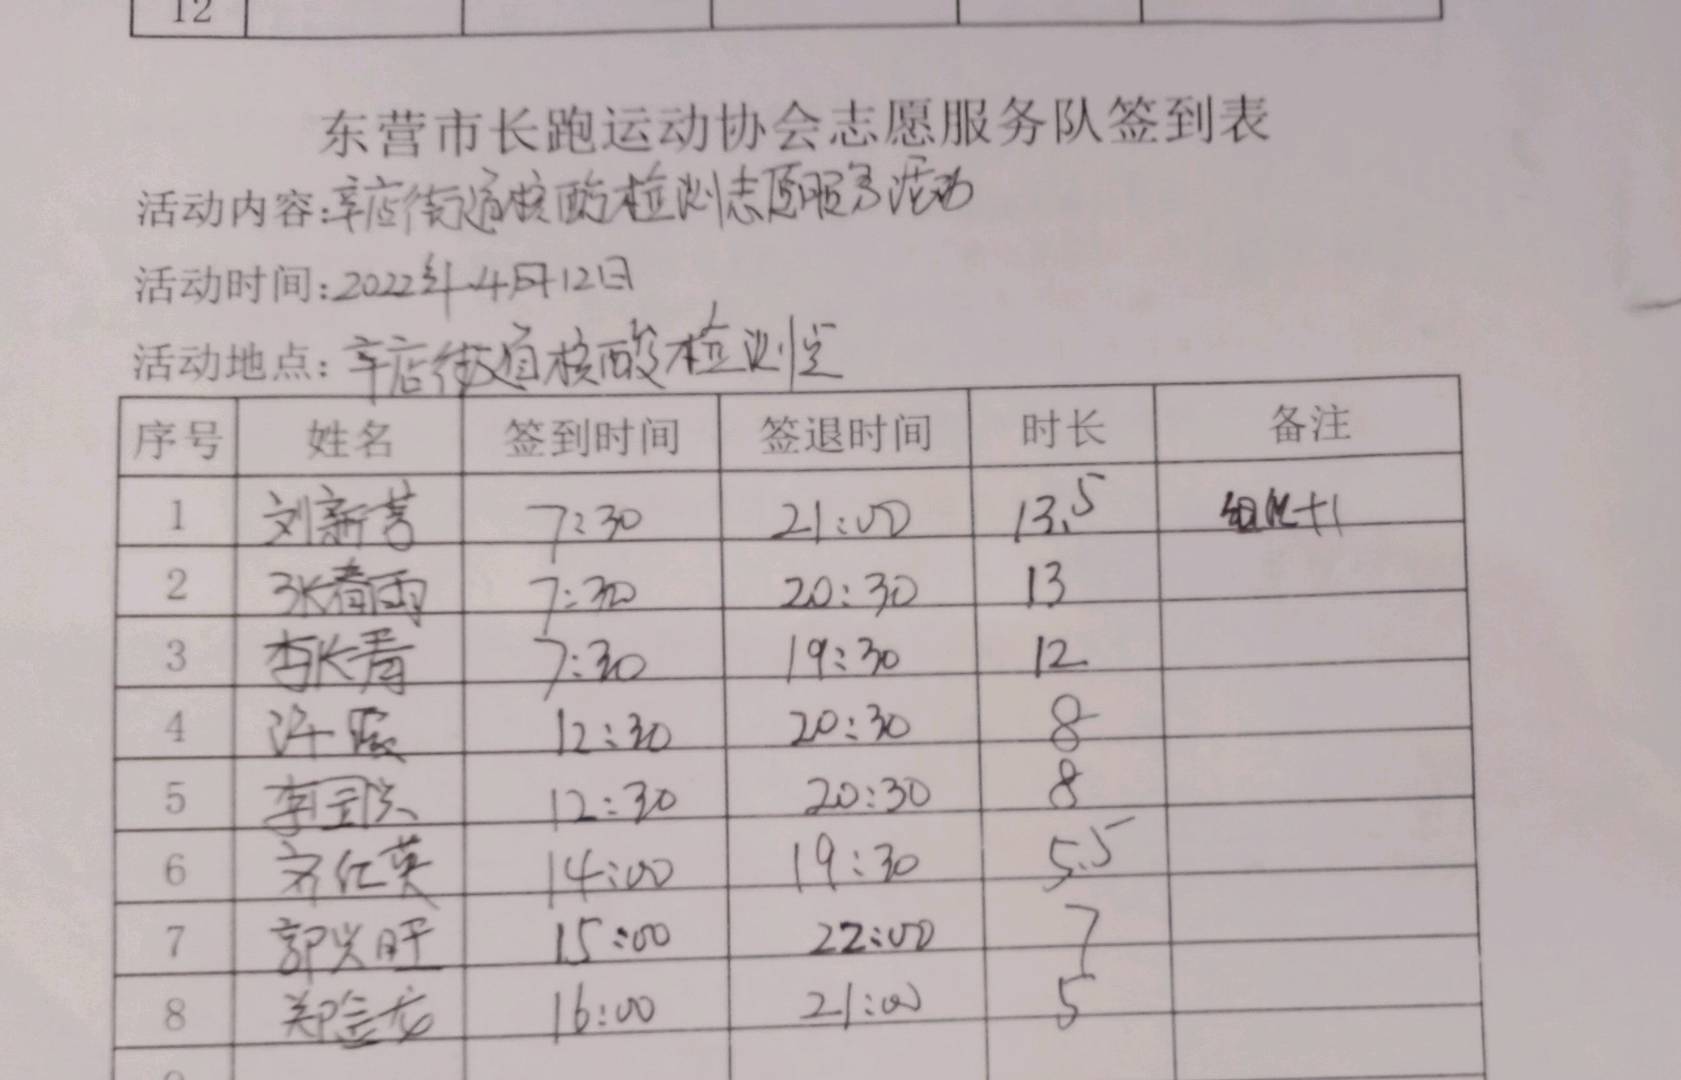 12
东营市长跑运动协会志愿服务队签到表
活动内容:辛店街道核酸检测志愿服务活动
活动时间:2022年4月12日
活动地点:辛店街道核酸检测点
序号 姓名 签到时间 签退时间 时长 备注
1 刘新营 7:30 21:00 13.5 组织+1
2 张春雨 7:30 20:30 13
3 李长青 7:30 19:30 12
4 许 12:30 20:30 8
5 李 12:30 20:30 8
6 齐红英 14:00 19:30 5.5
7 郭兴旺 15:00 22:00 7
8 郑金龙 16:00 21:00 5